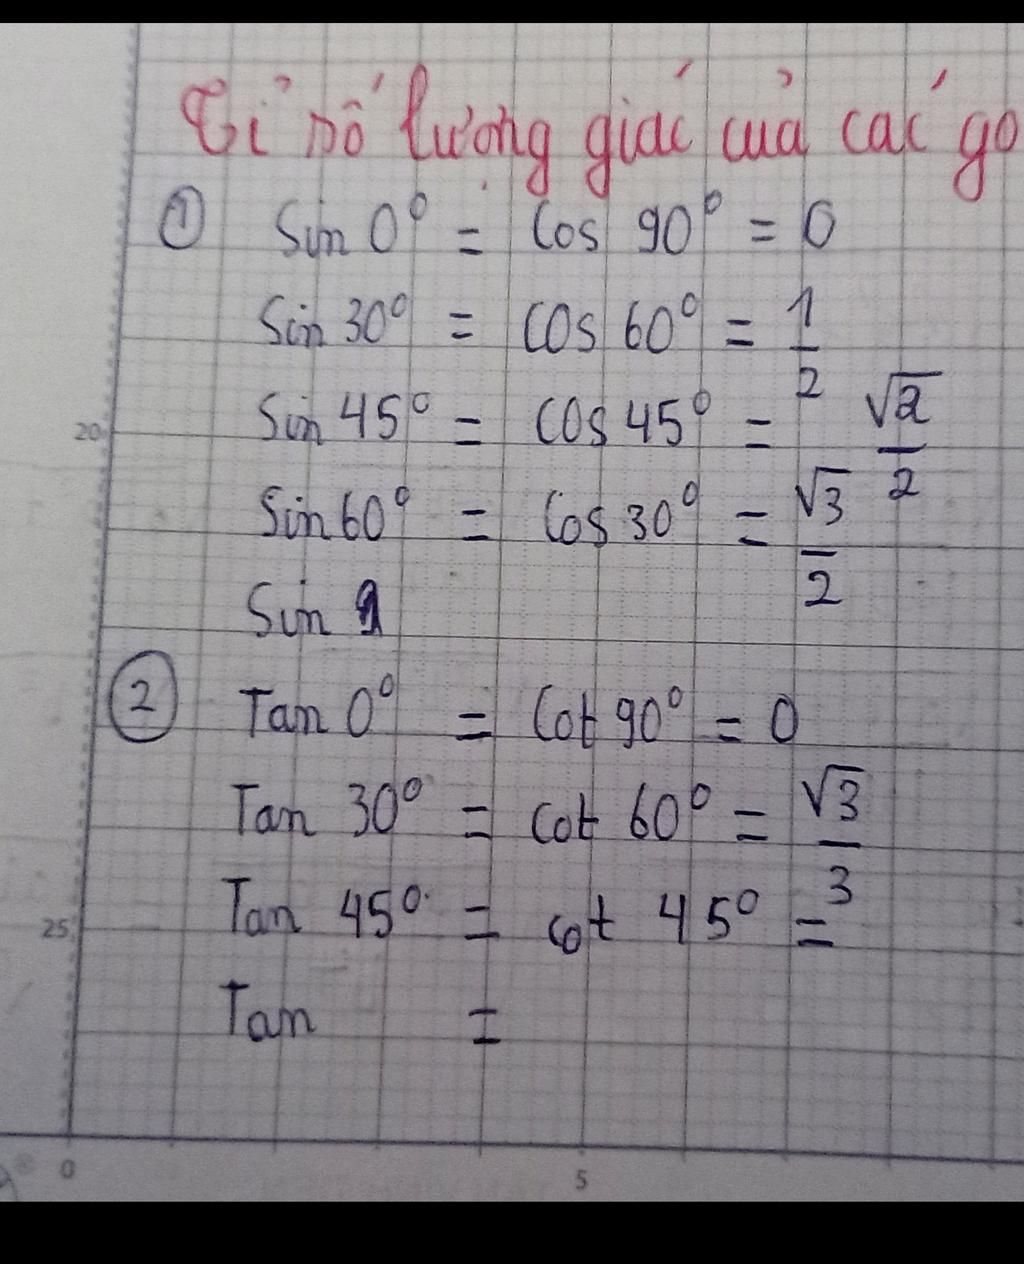 Tỉ số lượng giác của các gó
① Sin 0° = Cos 90° = 0
Sin 30° = cos 60° = 1/2
Sin 45° = cos 45° = √2/2
20
Sin 60° = Cos 30° = √3/2
Sin 9
② Tan 0° = Cot 90° = 0
Tan 30° = cot 60° = √3/3
Tan 45° = cot 45° =
25
Tan =
0 5